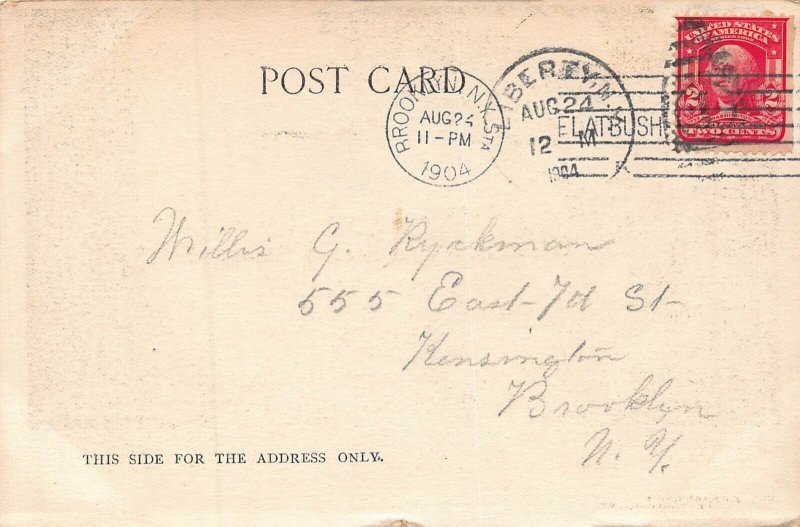 POST CARD
BROOKLYN, N.Y. STA
AUG 24
11-PM
1904
LIBERTY, N.Y.
AUG 24
12 M
1904
FLATBUSH
UNITED STATES
OF AMERICA
2 2
TWO CENTS
Willis G. Ryckman
555 East-7d St-
Kensington
Brooklyn
N. Y.
THIS SIDE FOR THE ADDRESS ONLY.